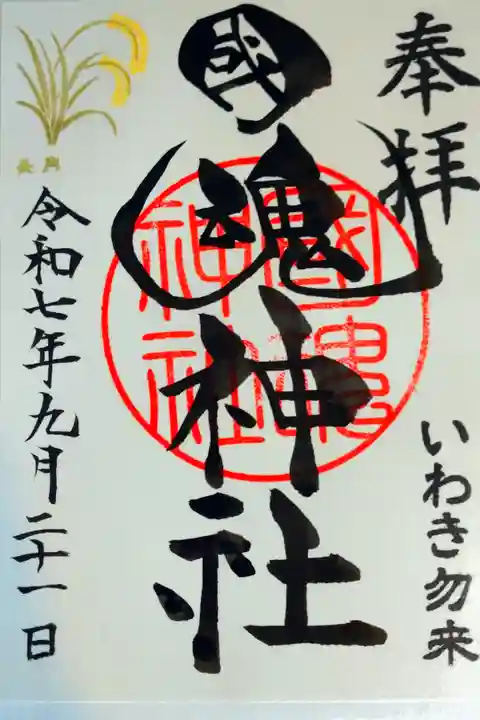 奉拝
いわき勿来
國魂神社
國魂
神社
令和七年九月二十一日